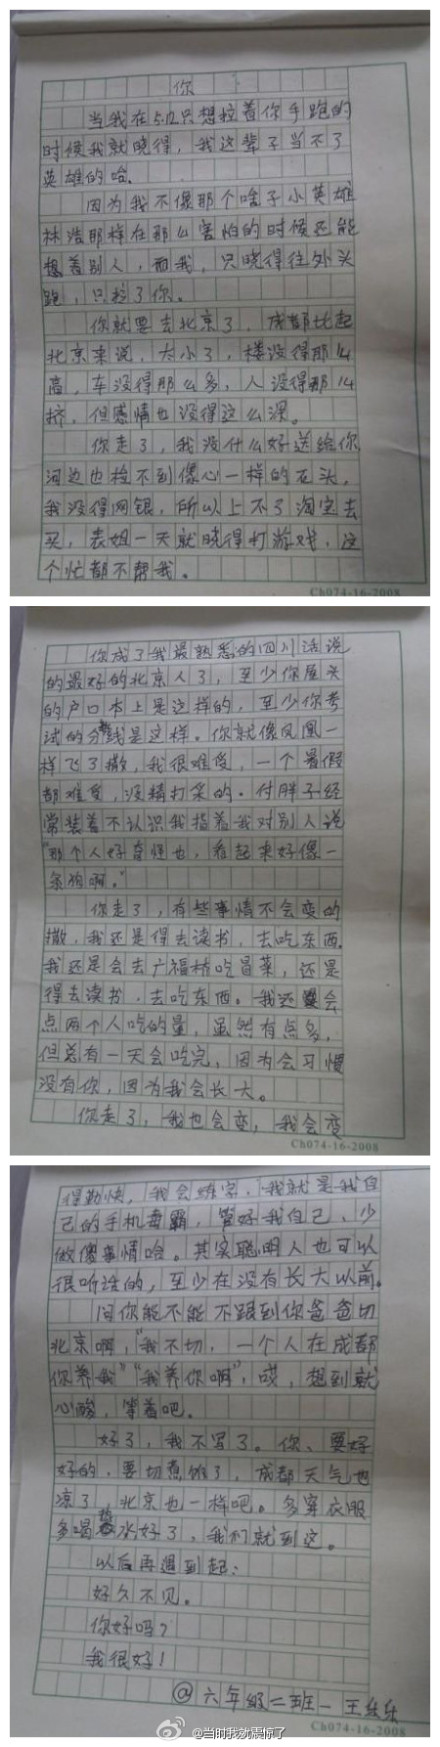 你
当我在5.12只想拉着你手跑的
时候我就晓得，我这辈子当不了
英雄的哈。
因为我不像那个啥子小英雄
林浩那样在那么害怕的时候还能
想着别人，而我，只晓得往外头
跑，只拉了你。
你就要去北京了，成都比起
北京来说，太小了，楼没得那么
高，车没得那么多，人没得那么
挤，但感情也没得这么深。
你走了，我没什么好送给你
河边也捡不到像心一样的石头，
我没得网银，所以上不了淘宝去
买，表姐一天就晓得打游戏，这
个忙都不帮我。
Ch074-16-2008
你成了我最熟悉的四川话说
的最好的北京人了，至少你屋头
的户口本上是这样的，至少你考
试的分数线是这样。你就像凤凰一
样飞了撒，我很难受，一个暑假
都难受，没精打采的。付胖子经
常装着不认识我指着我对别人说
“那个人好奇怪也，看起来好像一
条狗啊。”
你走了，有些事情不会变的
撒，我还是得去读书，去吃东西。
我还是会去广福桥吃冒菜，还是
得去读书，去吃东西。我还要会
点两个人吃的量，虽然有点多，
但总有一天会吃完，因为会习惯
没有你，因为我会长大。
你走了，我也会变，我会变
Ch074-16-2008
得勤快，我会练字，我就是我自
己的手机毒霸，管好我自己，少
做傻事情哈。其实聪明人也可以
很听话的，至少在没有长大以前。
问你能不能不跟到你爸爸切
北京啊，“我不切，一个人在成都
你养我”“我养你啊”，哎，想到就
心酸，等着吧。
好了，我不写了。你，要好
好的，要切煮饭了，成都天气也
凉了，北京也一样吧。多穿衣服
多喝热水好了，我们就到这。
以后再遇到起：
好久不见。
你好吗？
我很好！
@六年级二班一王乐乐
Ch074-16-2008
@当时我就震惊了